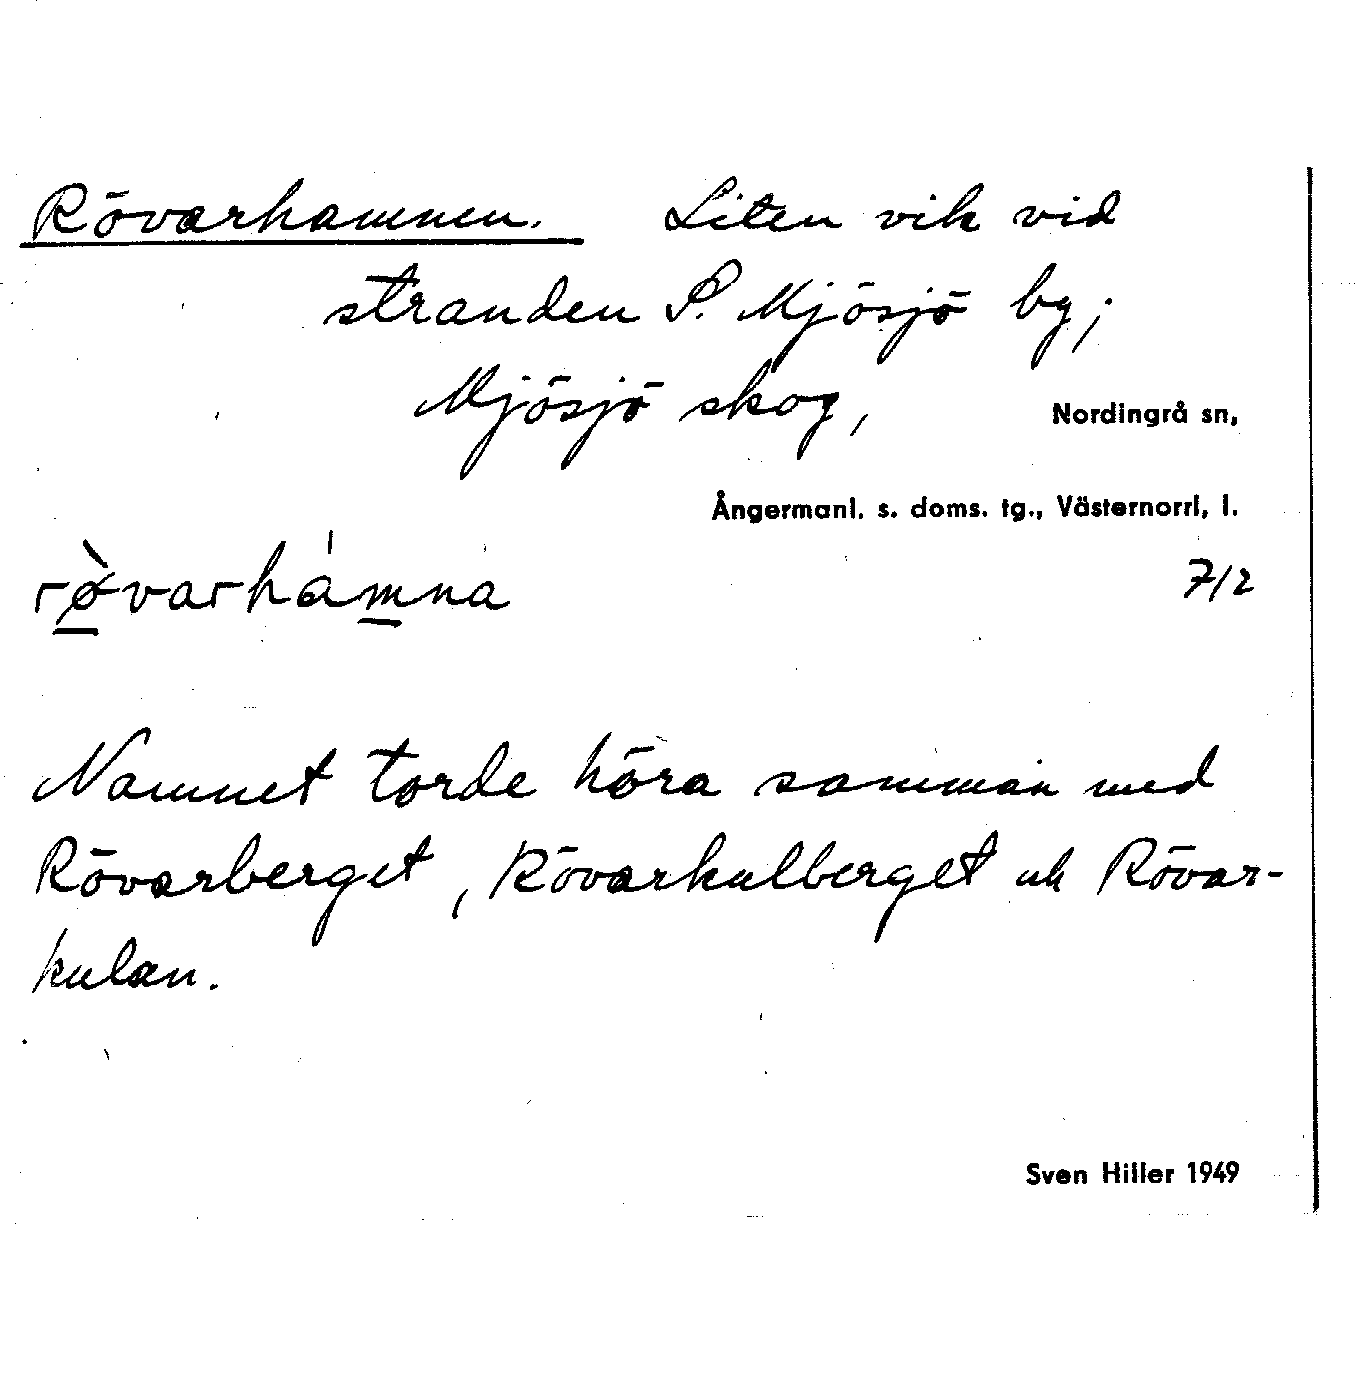 Rövarhamnen. Liten vik vid
stranden S. Mjösjö by;
Mjösjö skog, Nordingrå sn,
Ångermanl. s. doms. tg., Västernorrl, l.
rø̀varhámna 712
Namnet torde höra samman med
Rövarberget, Rövarkulberget och Rövar-
kulan.
Sven Hiller 1949